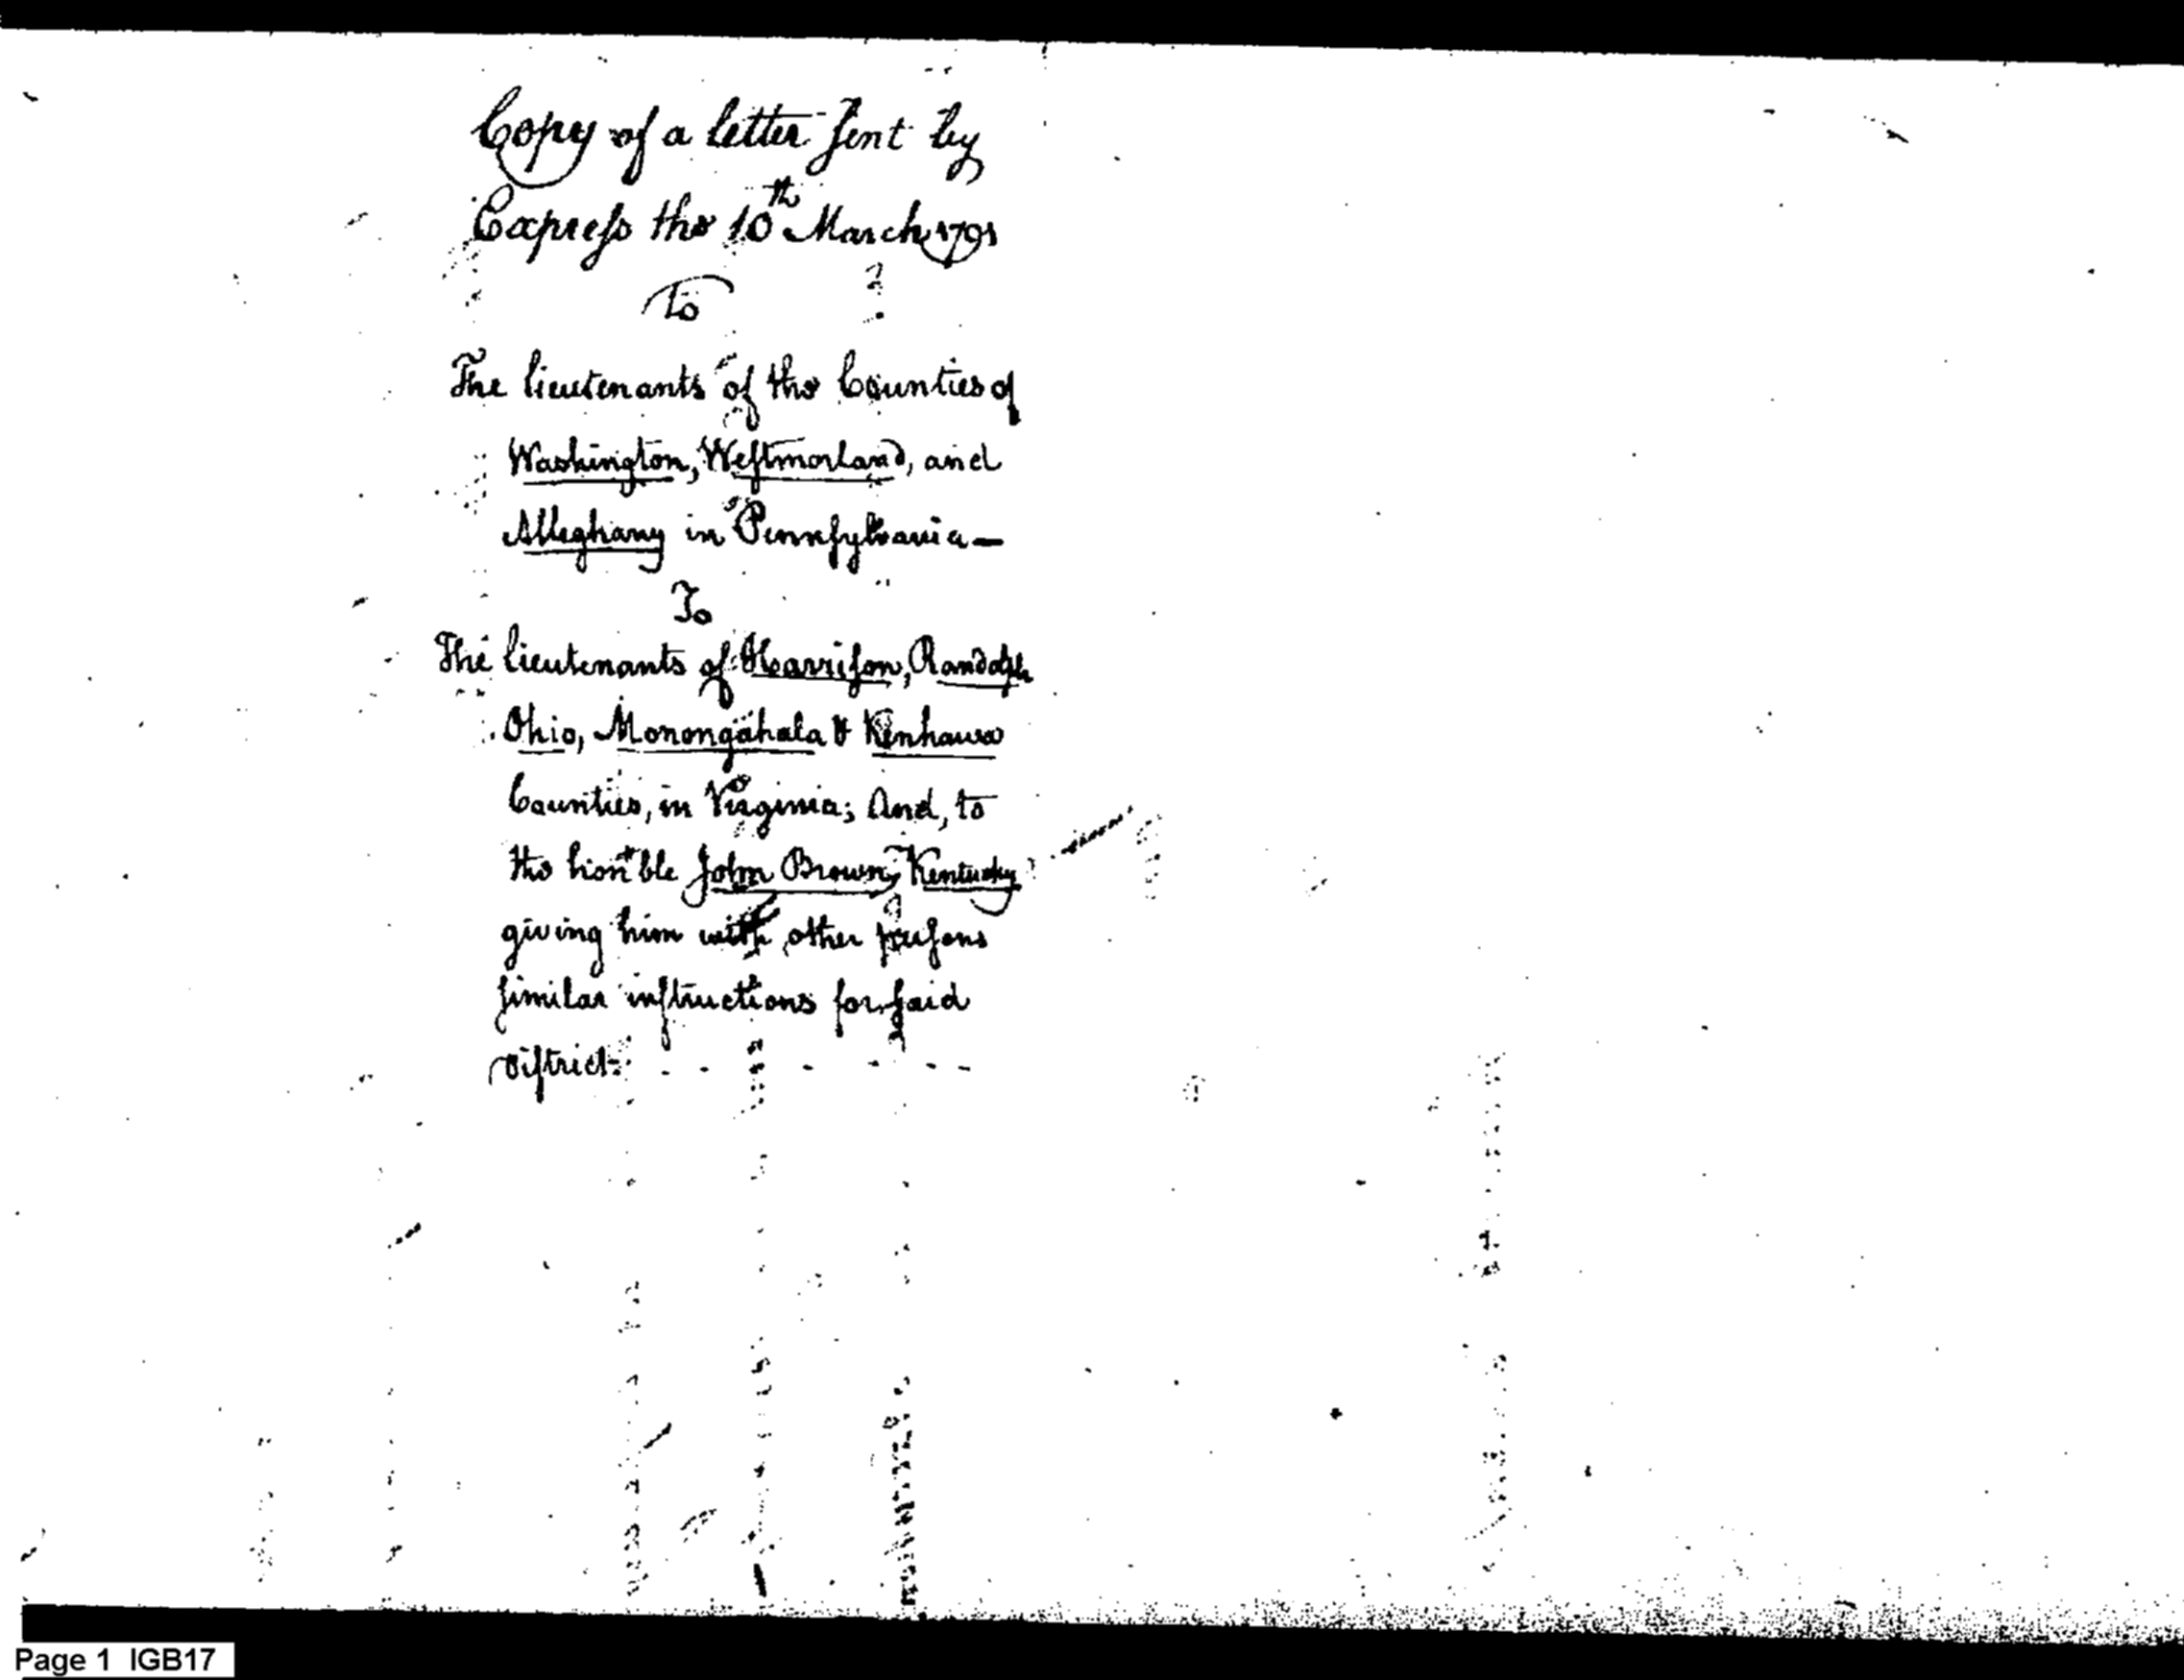 Copy of a letter sent by
Express the 10th March 1791
To
The lieutenants of the Counties of
Washington, Westmorland, and
Alleghany in Pennsylvania—
To
The lieutenants of Harrison, Randolph
Ohio, Monongahala & Kenhawa
Counties, in Virginia; And, to
the honble John Brown, Kentucky
giving him with other persons
similar instructions for said
district. - - - - - -
Page 1 IGB17